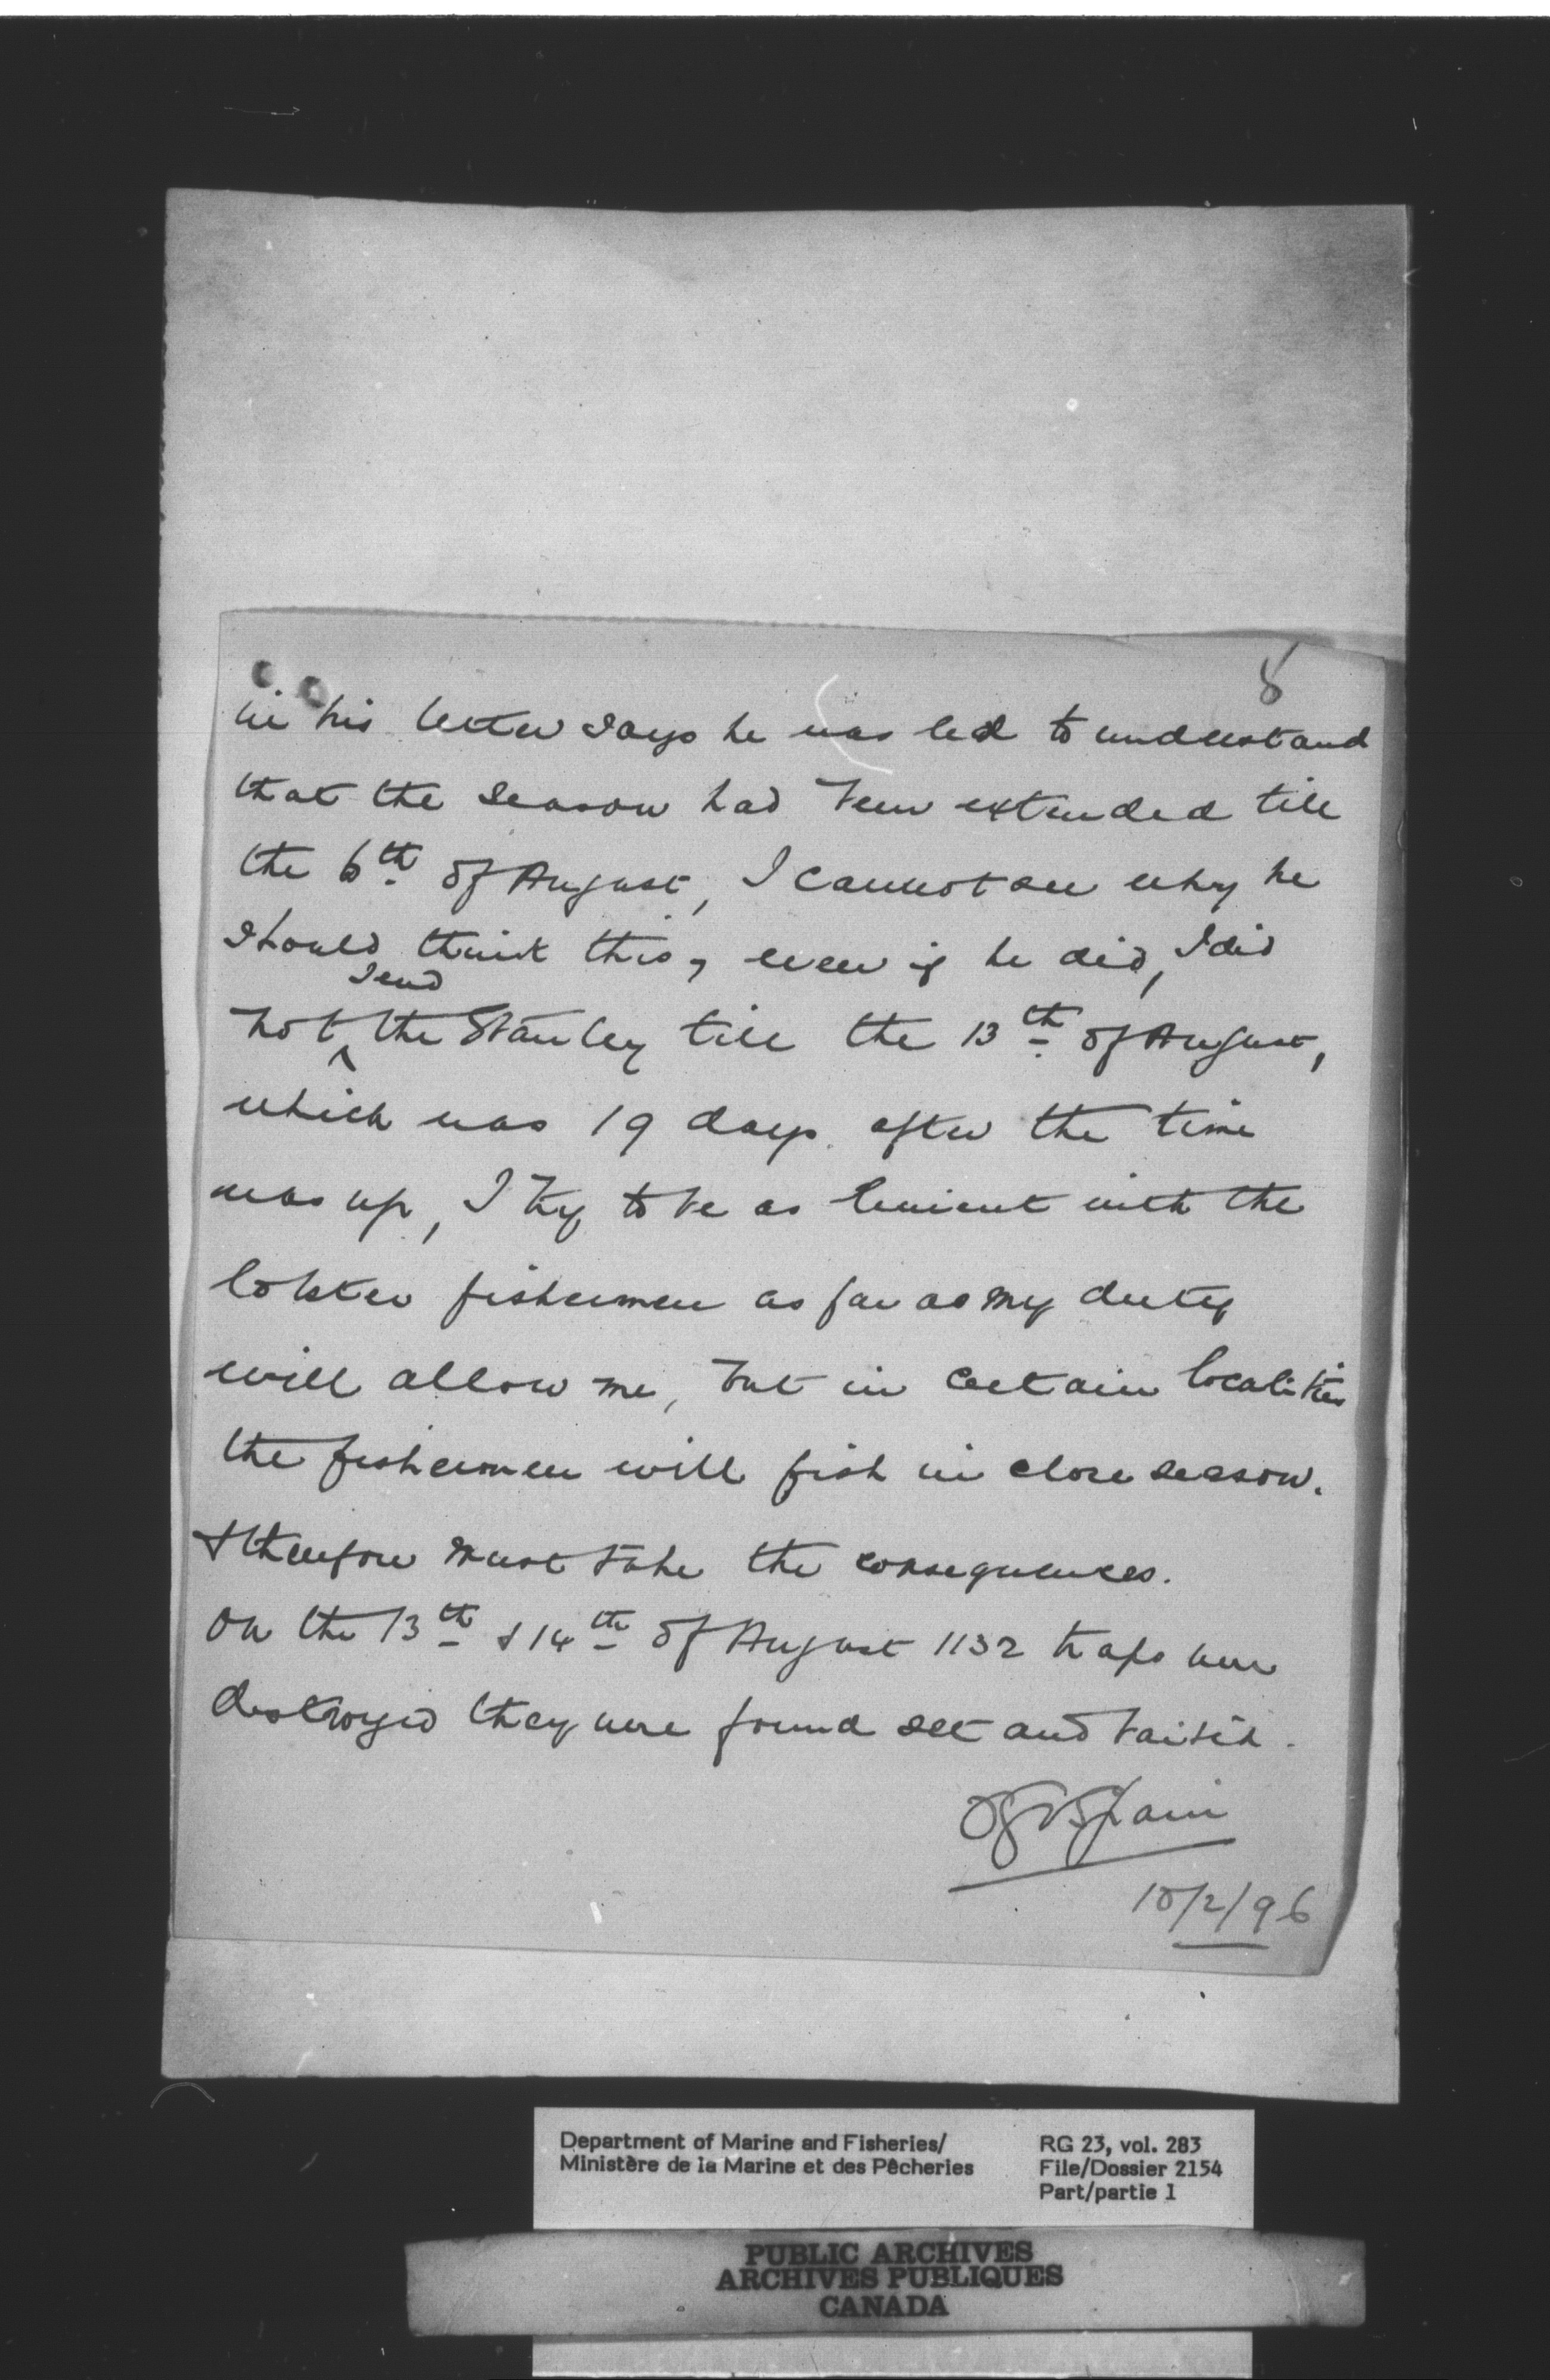 8
in his letter says he was led to understand
that the season had been extended till
the 6th of August, I cannot see why he
should think this, even if he did, I did
send
not the Stanley till the 13th of August,
which was 19 days after the time
was up, I try to be as lenient with the
lobster fishermen as far as my duty
will allow me, but in certain localities
the fishermen will fish in close season.
& therefore must take the consequences.
On the 13th & 14th of August 1132 traps were
destroyed they were found set and baited.
OGV Spain
10/2/96
Department of Marine and Fisheries/
Ministère de la Marine et des Pêcheries
RG 23, vol. 283
File/Dossier 2154
Part/partie 1
PUBLIC ARCHIVES
ARCHIVES PUBLIQUES
CANADA